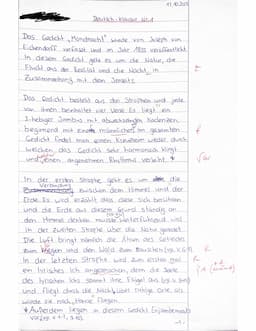 17.10.2011
Deutsch-Klausur Nr.1
Das Gedicht „Mondnacht" wurde von Joseph von
Eichendorff verfasst und im Jahr veröffentlicht.
In diesem Gedicht geht es um die Natur, die
Flucht aus der Realität und die Nacht, in
Zusammenhang mit dem Jenseits.
Das Gedicht besteht aus drei Strophen und jede
von ihnen beinhaltet vier Verse. Es liegt ein
3-hebiger Jambus mit abwechselnden Kadenzen,
beginnend mit männlichen im gesamten
Gedicht findet man einen Kreuzreim wieder durch
welchen das Gedicht sehr harmonisch klingt
und einen angenehmen Rhythmus verleiht. *
In der ersten Strophe geht es um die
Verbindung
zwischen dem Himmel und der
Erde. Es wird erzählt dass diese sich berühren
und die Erde aus diesem Grund ständig an
den Himmel denken müsste.
In der zweiten Strophe über die Natur geredet.
Die Luft bringt nämlich die Ähren des Getreides
zum Wiegen und den Wald zum Rauschen
In der letzten Strophe wird zum ersten Mal
ein lyrisches Ich angesprochen, denn die Seele
des lyrischen Ichs spannt ihre Flügel aus
und fliegt durch die Nacht, über Dinge als
würde sie nach Hause fliegen.
* Außerdem liegen in diesem Gedicht Enjambements
vor